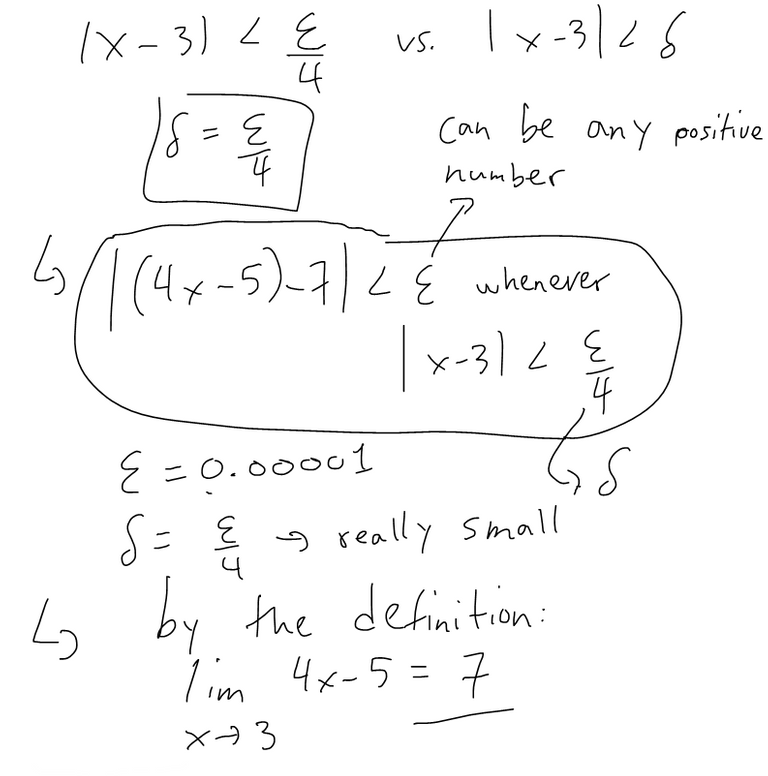 |x-3| < ε/4 vs. |x-3| < δ
δ = ε/4
can be any positive
number
↳ |(4x-5)-7| < ε whenever
|x-3| < ε/4
ε = 0.00001
↳ δ
δ = ε/4 → really small
↳ by the definition:
lim 4x-5 = 7
x→3